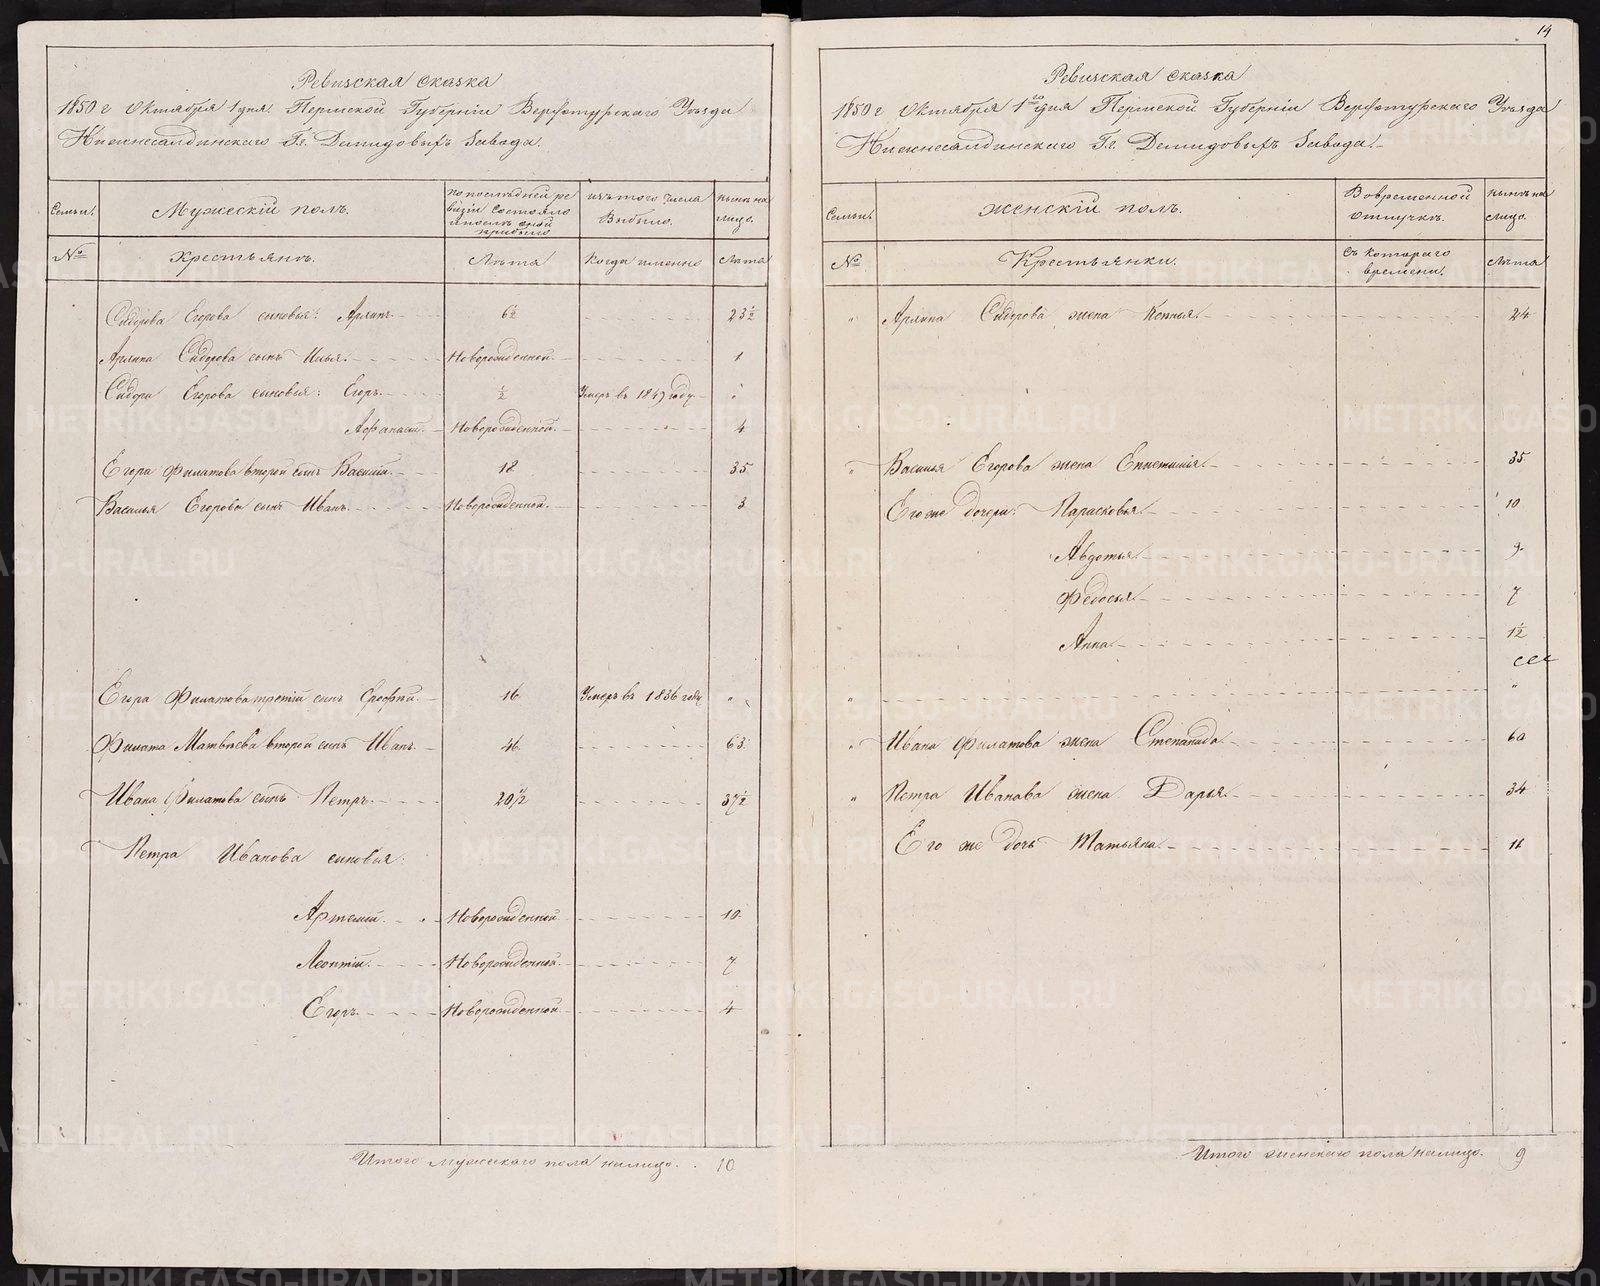 14
Ревизская сказка
1850 г Октября 1 дня. Пермской Губернiи Верхотурскаго Уѣзда
Нижнесалдинскаго Гг. Демидовыхъ Завода.
Семьи.
Мужескiй полъ.
По послѣдней ре
визiи состояло
и послѣ оной
прибыло
изъ того числа
Выбыло.
нынѣ на
лицо.
№
Крестьянъ.
Лѣта
Когда именно
Лѣта
Сидора Егорова сыновья: 6½ 23½
Сидорова сынъ Илья. Новорожденной. 1
Сидора Егорова сыновья: Егоръ. ½ Умеръ въ 1849 году
Афанасiй. Новорожденной. 4
Егора Филатова второй сынъ Василiй. 18 35
Василья Егорова сынъ Иванъ. Новорожденной. 3
Егора Филатова третiй сынъ 16 Умеръ въ 1836 году "
Филата Матвѣева второй сынъ Иванъ. 46 63
Ивана Филатова сынъ Петръ. 20½ 37½
Петра Иванова сыновья:
Артемiй. Новорожденной 10
Леонтiй. Новорожденной. 7
Егоръ. Новорожденной 4
Итого мужескаго пола налицо. 10
Ревизская сказка
1850 г Октября 1го дня Пермской Губернiи Верхотурскаго Уѣзда
Нижнесалдинскаго Гг. Демидовыхъ Завода.
Семьи.
Женскiй полъ.
Во временной
отлучкѣ.
нынѣ на
лицо.
№
Крестьянки.
Съ котораго
времени.
Лѣта
" Сидорова жена 24
" Василья Егорова жена Епистимiя. 35
Его же дочери: Парасковья. 10
Авдотья. 9
Федосья. 7
Анна. 1½
" "
" Ивана Филатова жена Степанида. 60
" Петра Иванова жена Дарья. 34
Его же дочь Татьяна. 11
Итого женскаго пола налицо. 9
METRIKI.GASO-URAL.RU